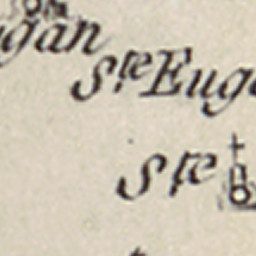 gan
Ste Eug
Ste